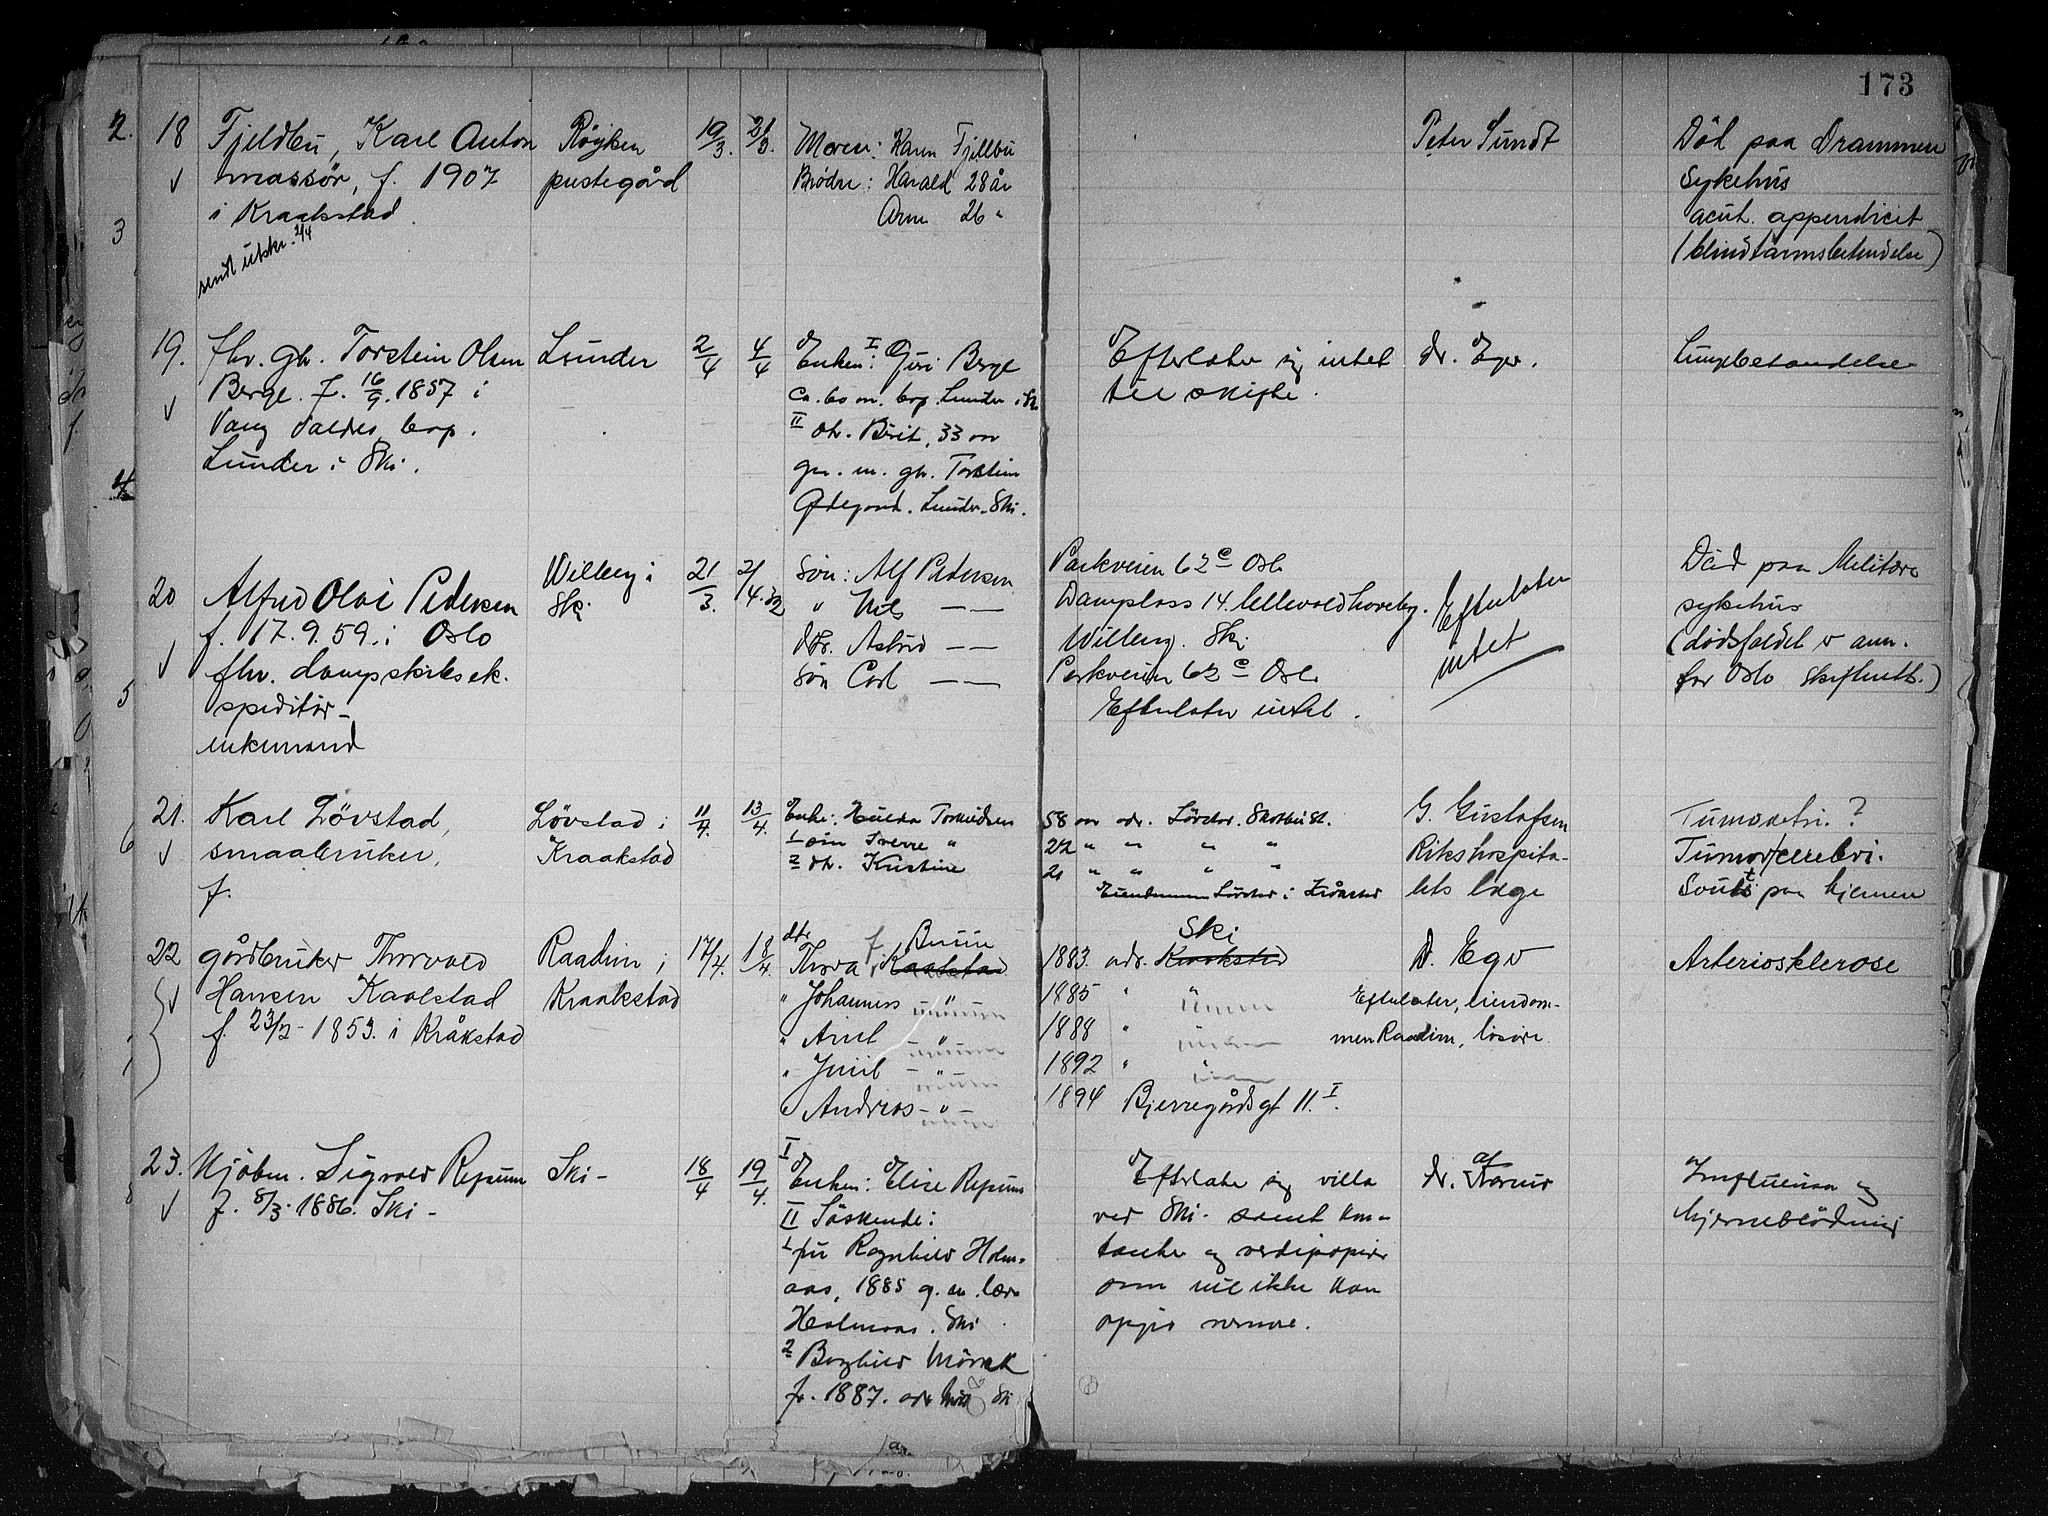 173
18 Fjeldbu, Karl Anton
massør, f. 1907
i Kraakstad
sendt utskr. 2/4
Røyken
prestegård
19/3. 21/3.
Moren: Karen Fjellbu
Brødre: Harald 28 år
Arne 26 "
Peter Sundt
Död paa Drammen
Sykehus
acut. appendicit
(blindtarmsbetendelse)
19. fhv. gb. Torstein Olsen
Berge. f. 16/9. 1857 i
Vang Valdres, bop.
Lunder i Ski.
Lunder
2/4 4/4
I
Enken: Guri Berge
ca. 60 år. bop. Lunder i Ski
II dtr. Birit, 33 år
gm. m. gb. Torstein
Ødegaard. Lunder. Ski.
Efterlater sig intet
til skifte.
dr. Eger.
Lungebetændelse
20 Alfred Olai Pedersen
f. 17.9.59. i Oslo
fhv. dampskibsek.
speditør -
enkemand
Wilberg i
Ski
21/3. 2/4.32
Søn: Alf Pedersen
" Nils — —
dtr. Astrid — —
Søn Carl — —
Parkveien 62 c Oslo
Damplass 14. Ullevaal haveby.
Wilberg. Ski
Parkveien 62 c Oslo
Efterlater intet.
Efterlater
intet
Död paa Militære
sykehus
(dødsfaldet v anm.
for Oslo Skifterett.)
21. Karl Lövstad,
smaabruker,
f.
Løvstad i
Kraakstad
11/4. 13/4.
Enke: Hulda Torkildsen
1 søn Sverre "
2 dtr. Kristine
58 aar adr. Lövstad. Skotbu St.
22 " " " "
21 " " " "
Eiendommen Lövstad i Kråkstad
G. Gustafsen
Rikshospita-
lets læge
Tumor cetri. ?
Tumor cerebri.
Svulst paa hjernen
22 gårdbruker Thorvald
Hansen Kaalstad
f. 23/2 - 1853. i Kråkstad
Raadim i
Kraakstad
17/4. 18/4.
dtr
Thora f Kaalstad
Bruun
" Johannes — " —
" Arnt — " —
" Emil — " —
" Andreas — " —
Ski
1883. adr. Kraakstad
1885 " "
1888 "
1892 "
1894 Bjerregårdsgt 11. I.
D. Eger
Efterlater, eiendom-
men Raadim, løsøre.
Arteriosklerose
23. Kjöbm. Sigvald Repsum
f. 8/3. 1886. Ski -
Ski -
18/4 19/4.
I
Enken: Elise Repsum
II Söskende:
1 fru Ragnhild Holm-
aas, 1885 g. m. lærer
Holmaas. Ski
2 Borghild Mörk
f. 1887. adr Ski
Efterlater sig villa
ved Ski - samt kon-
tanter og verdipapirer
som ble ikke kan
opgis nærmere.
dr.
Influensa og
hjerneblödning